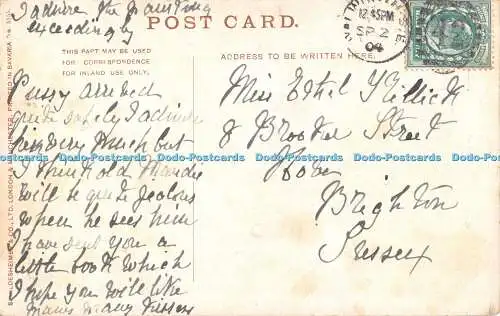 I admire the painting
exceedingly
POST CARD.
THIS PART MAY BE USED
FOR CORRESPONDENCE
FOR INLAND USE ONLY.
ADDRESS TO BE WRITTEN HERE.
12.45PM
SP 2
04
Pussy arrived
quite safely I admire
him very much but
I think old
will be quite jealous
when he sees him
I have sent you a
little book which
I hope you will like
many many kisses
Miss Ethel Killick
8 Brooker Street
Hove
Brighton
Sussex
Dodo-Postcards Dodo-Postcards Dodo-Postcards Dodo-Postcards Dodo-Postcards
Dodo-Postcards Dodo-Postcards Dodo-Postcards Dodo-Postcards Dodo-Postcards